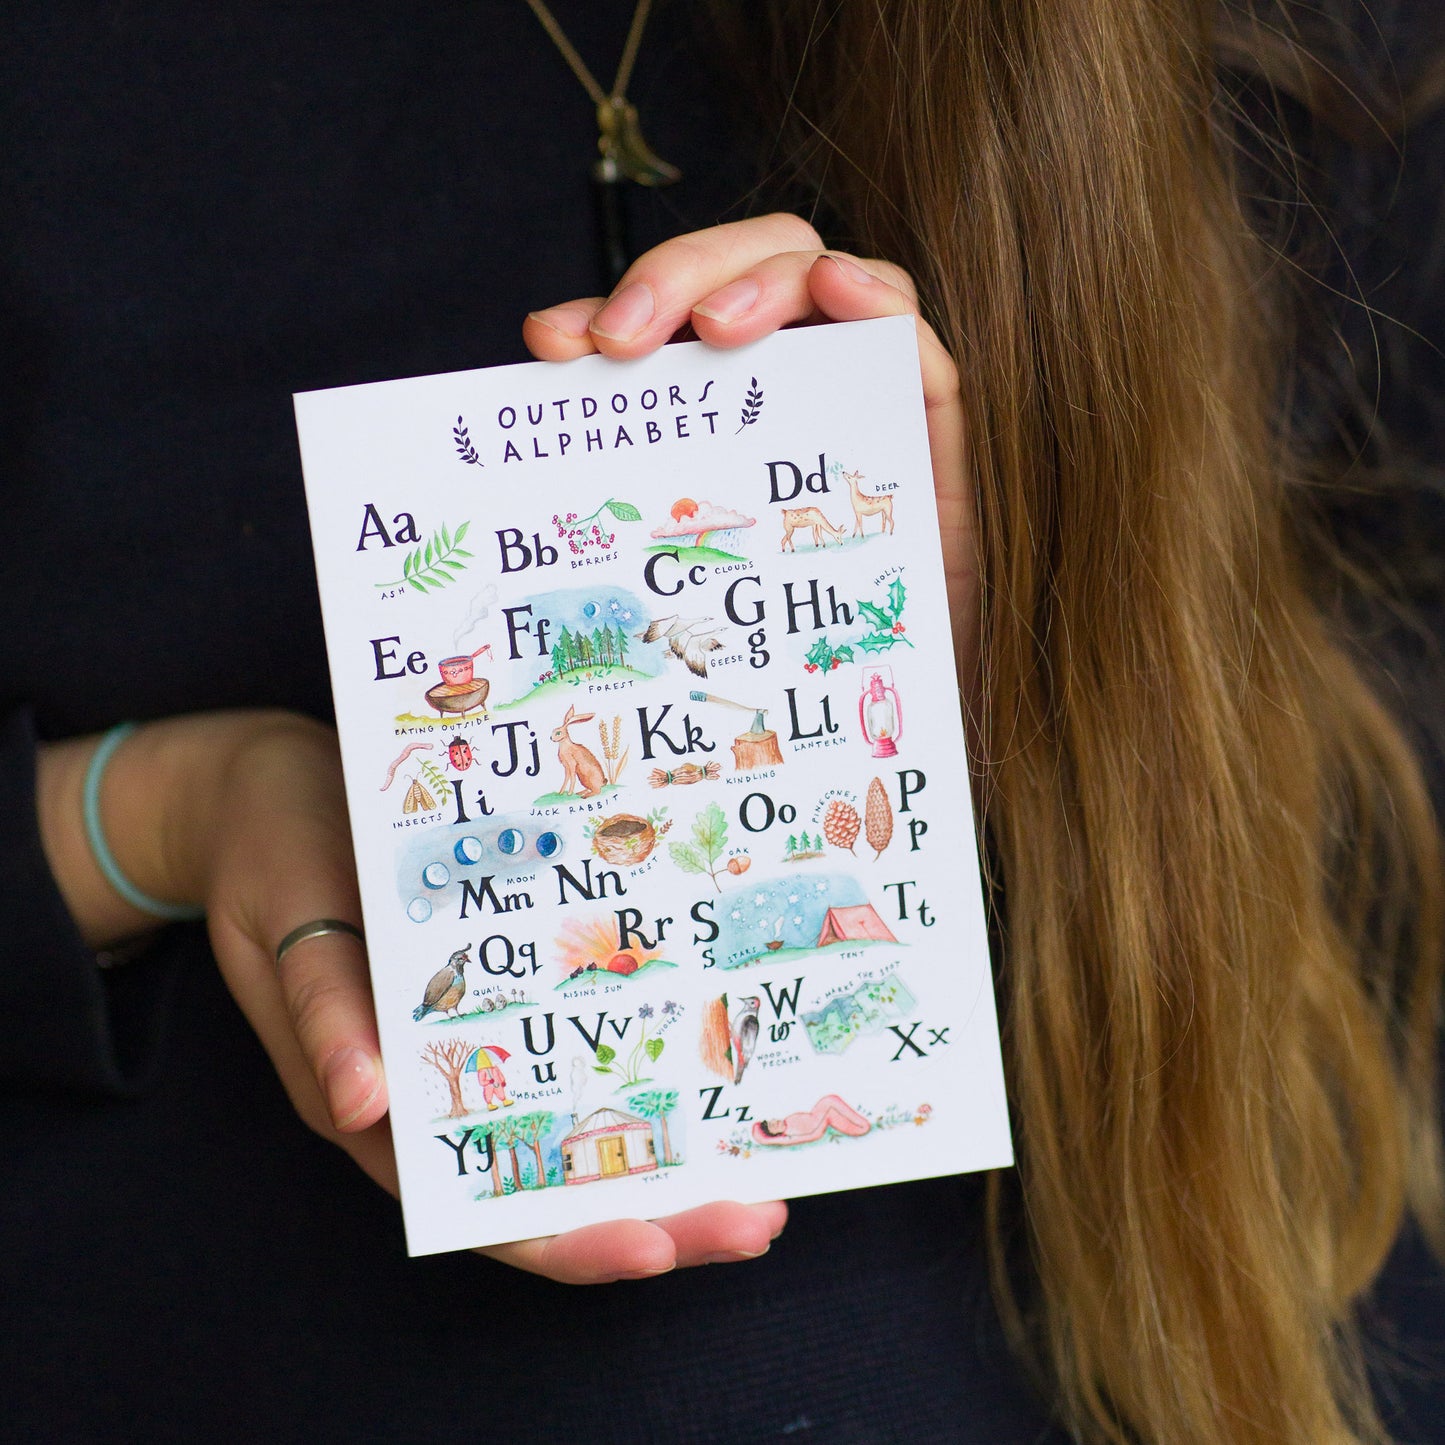 OUTDOORS
ALPHABET
Aa
ASH
Bb
BERRIES
Cc
CLOUDS
Dd
DEER
Ee
EATING OUTSIDE
Ff
FOREST
G
g
GEESE
Hh
HOLLY
Ii
INSECTS
Jj
JACK RABBIT
Kk
KINDLING
Ll
LANTERN
Mm
MOON
Nn
NEST
Oo
OAK
P
p
PINECONES
Qq
QUAIL
Rr
RISING SUN
S
s
STARS
Tt
TENT
U
u
UMBRELLA
Vv
VIOLETS
W
w
WOOD-
PECKER
'X' MARKS THE SPOT
Xx
Yy
YURT
Zz